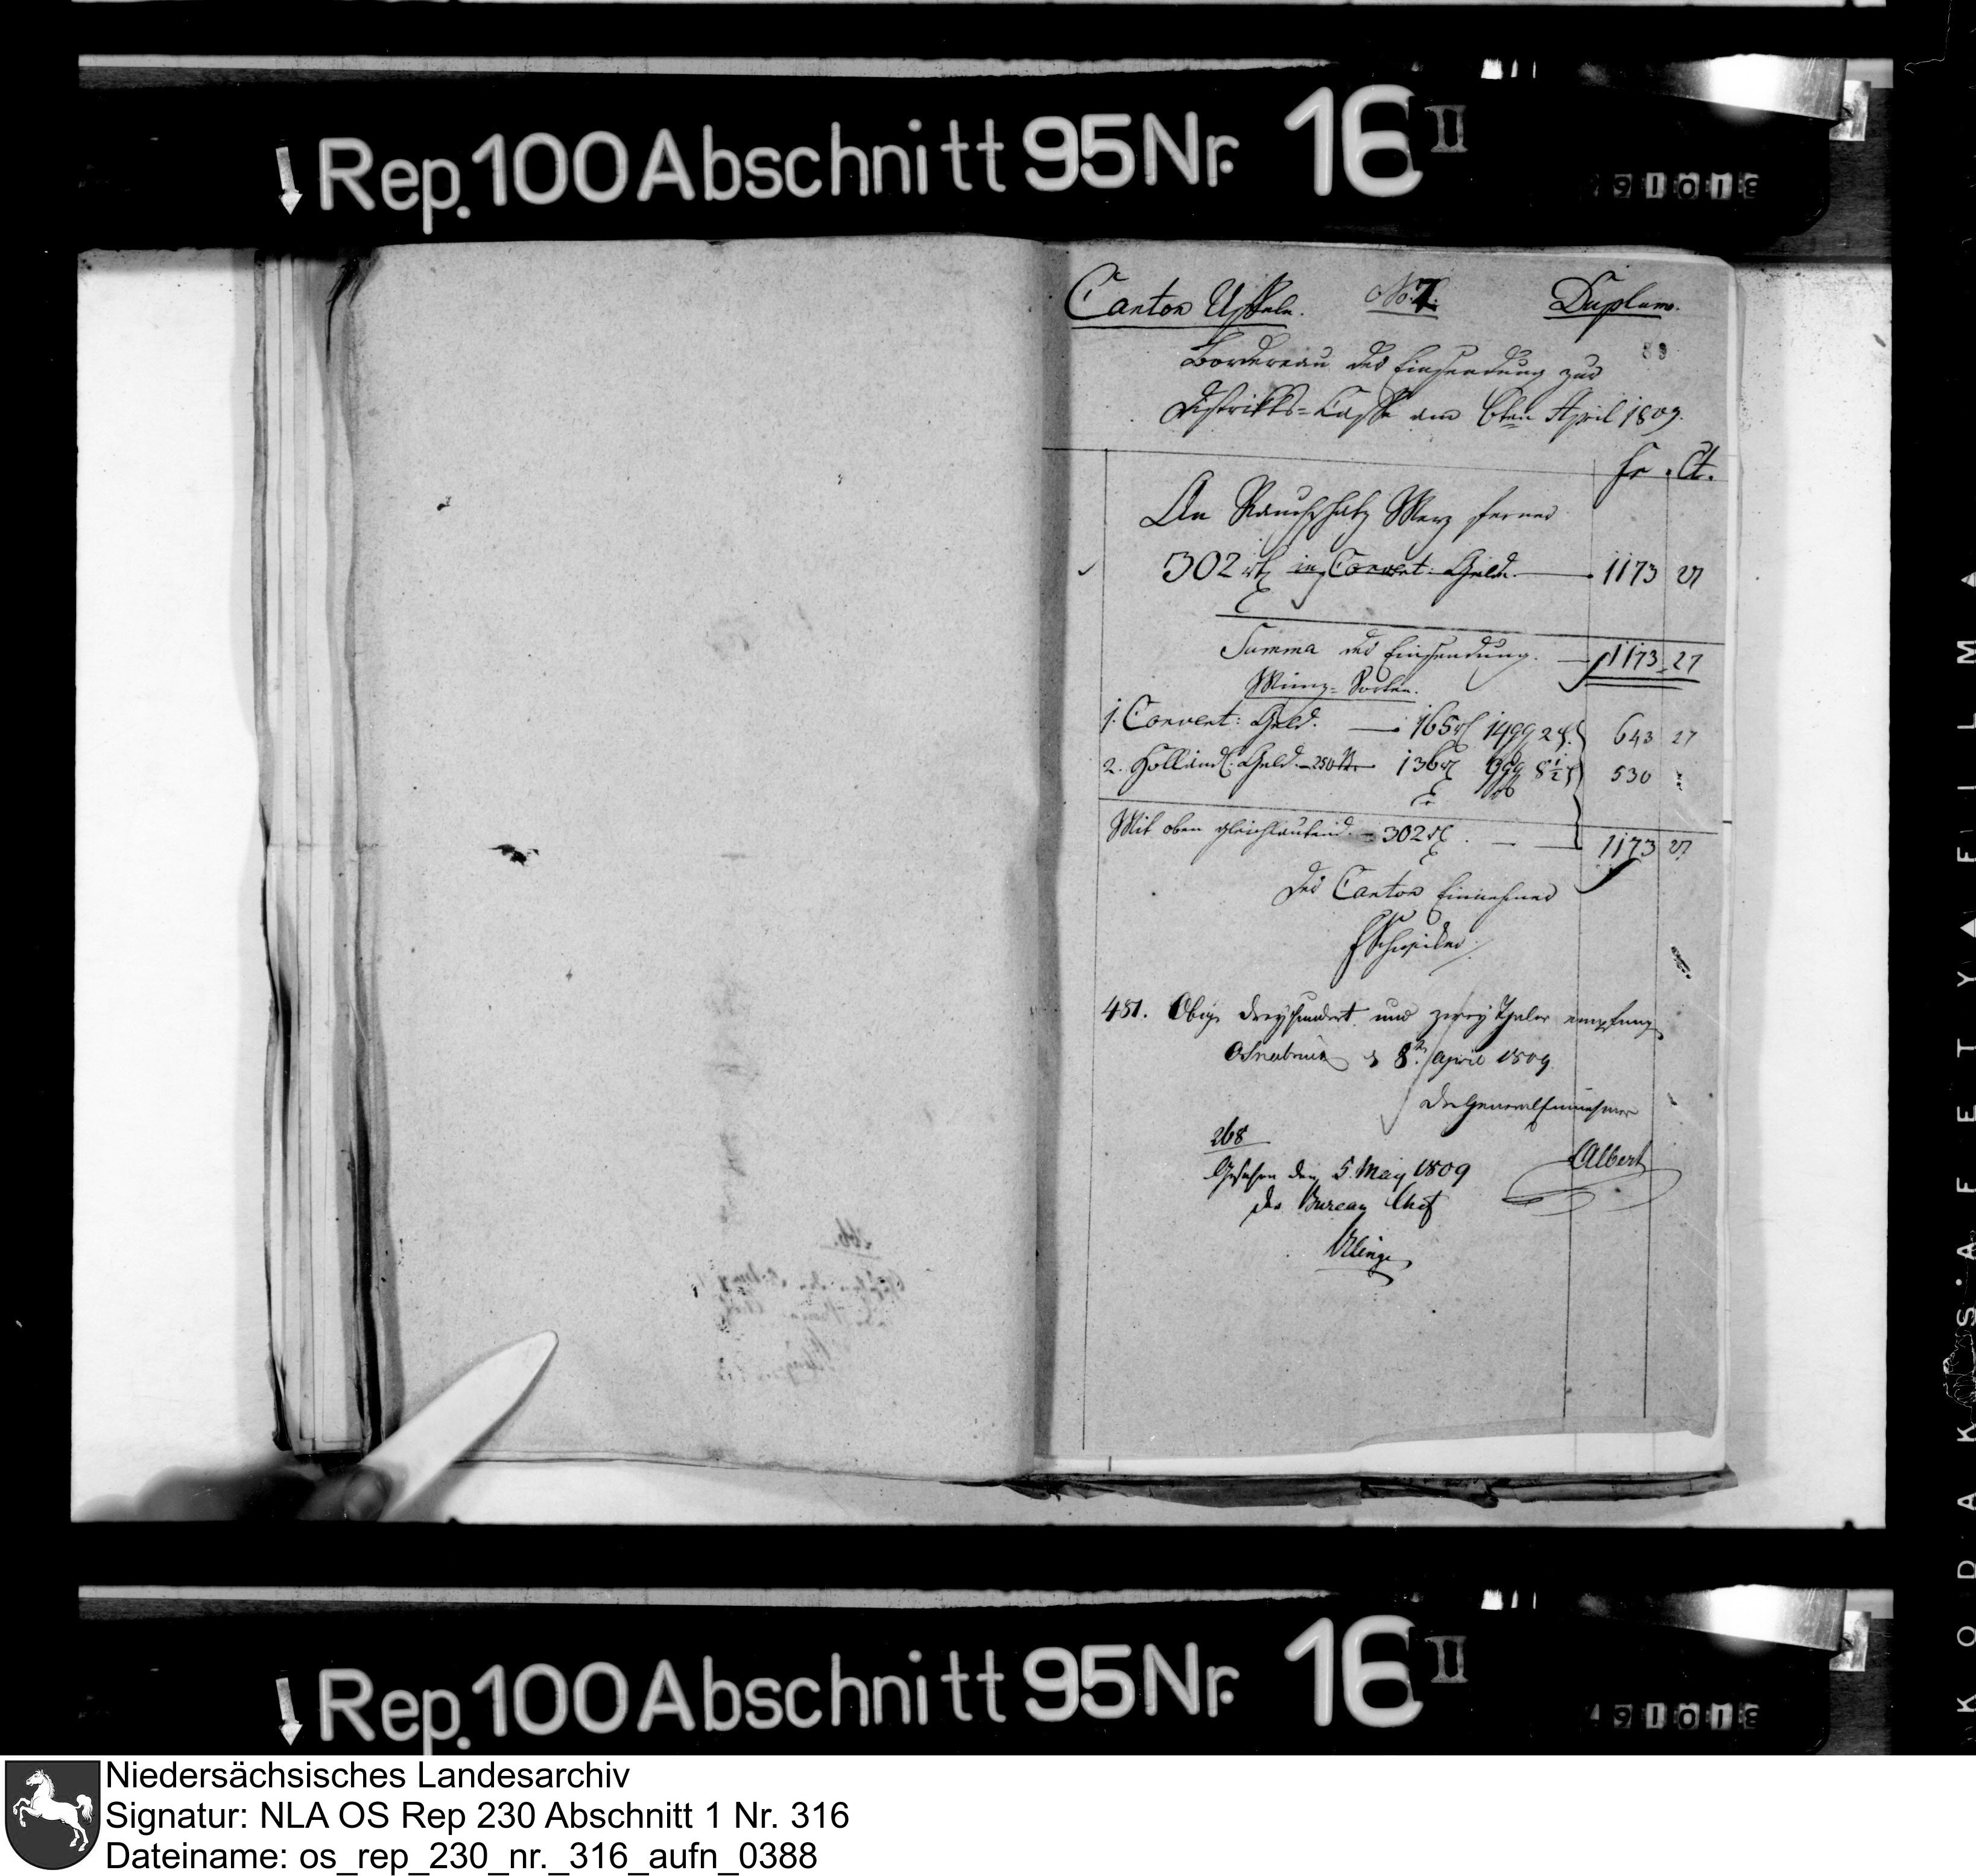 Rep. 100 Abschnitt 95 Nr. 16 II
Canton No. 7. Duplum.
Bordereau der Einsendung zur
Distrikts=Casse am 6ten April 1809.
Fr. Ct.
An Rauchschatz Merz ferner
302 rt in Convent: Gelde. 1173 27
Summa der Einsendung. 1173 27
Münz=Sorten.
1. Convent: Geld. 165 643 27
2. Holländ. Geld. 136 530
Mit oben gleichlautend. 302 1173 27
Der Canton Einnehmer
451. Obige dreyhundert und zwey Thaler empfing
Osnabrück d 8t. April 1809
Der Generaleinnehmer
Albert
268
Gesehen den 5. May 1809
der Bureau Chef
KODAK SAFETY FILM
Rep. 100 Abschnitt 95 Nr. 16 II
Niedersächsisches Landesarchiv
Signatur: NLA OS Rep 230 Abschnitt 1 Nr. 316
Dateiname: os_rep_230_nr._316_aufn_0388